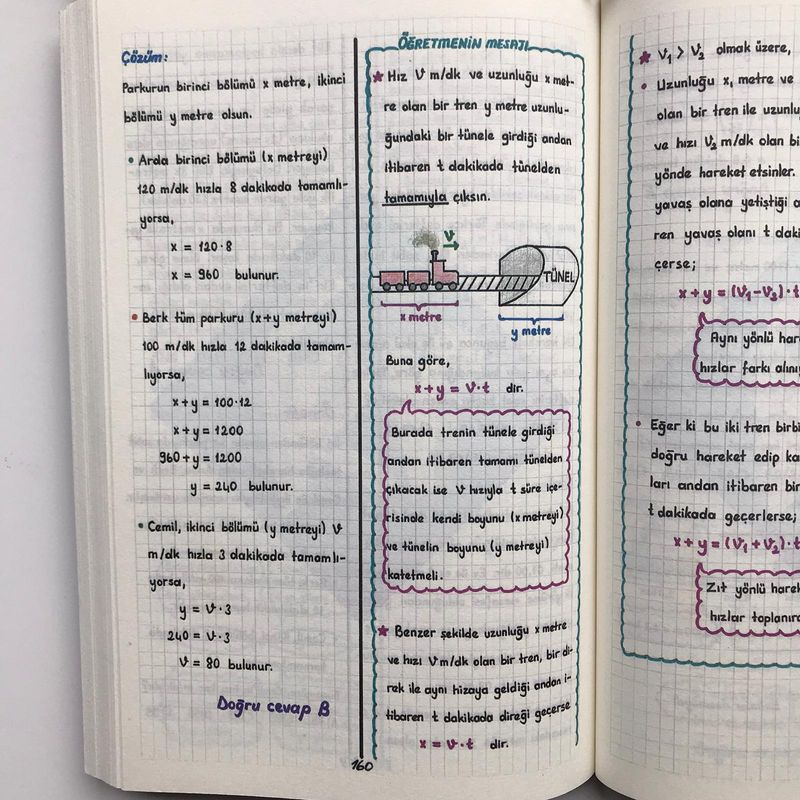 Çözüm:
Parkurun birinci bölümü x metre, ikinci
bölümü y metre olsun.
• Arda birinci bölümü (x metreyi)
120 m/dk hızla 8 dakikada tamamlı-
yorsa,
x = 120·8
x = 960 bulunur.
• Berk tüm parkuru (x+y metreyi)
100 m/dk hızla 12 dakikada tamam-
lıyorsa,
x+y = 100·12
x+y = 1200
960+y = 1200
y = 240 bulunur.
• Cemil, ikinci bölümü (y metreyi) V
m/dk hızla 3 dakikada tamamlı-
yorsa,
y = V·3
240 = V·3
V = 80 bulunur.
Doğru cevap B
ÖĞRETMENİN MESAJI
★ Hız V m/dk ve uzunluğu x met-
re olan bir tren y metre uzunlu-
ğundaki bir tünele girdiği andan
itibaren t dakikada tünelden
tamamıyla çıksın.
V
TÜNEL
x metre
y metre
Buna göre,
x+y = V·t dir.
Burada trenin tünele girdiği
andan itibaren tamamı tünelden
çıkacak ise V hızıyla t süre içe-
risinde kendi boyunu (x metreyi)
ve tünelin boyunu (y metreyi)
katetmeli.
★ Benzer şekilde uzunluğu x metre
ve hızı V m/dk olan bir tren, bir di-
rek ile aynı hizaya geldiği andan i-
tibaren t dakikada direği geçerse
x = V·t dir.
160
★ V₁ > V₂ olmak üzere,
• Uzunluğu x₁ metre ve
olan bir tren ile uzunlu
ve hızı V₂ m/dk olan bi
yönde hareket etsinler.
yavaş olana yetiştiği a
ren yavaş olanı t daki
çerse;
x+y = (V₁-V₂)·t
Aynı yönlü har
hızlar farkı alını
• Eğer ki bu iki tren birbi
doğru hareket edip ka
ları andan itibaren bir
t dakikada geçerlerse;
x+y = (V₁+V₂)·t
Zıt yönlü harek
hızlar toplanır